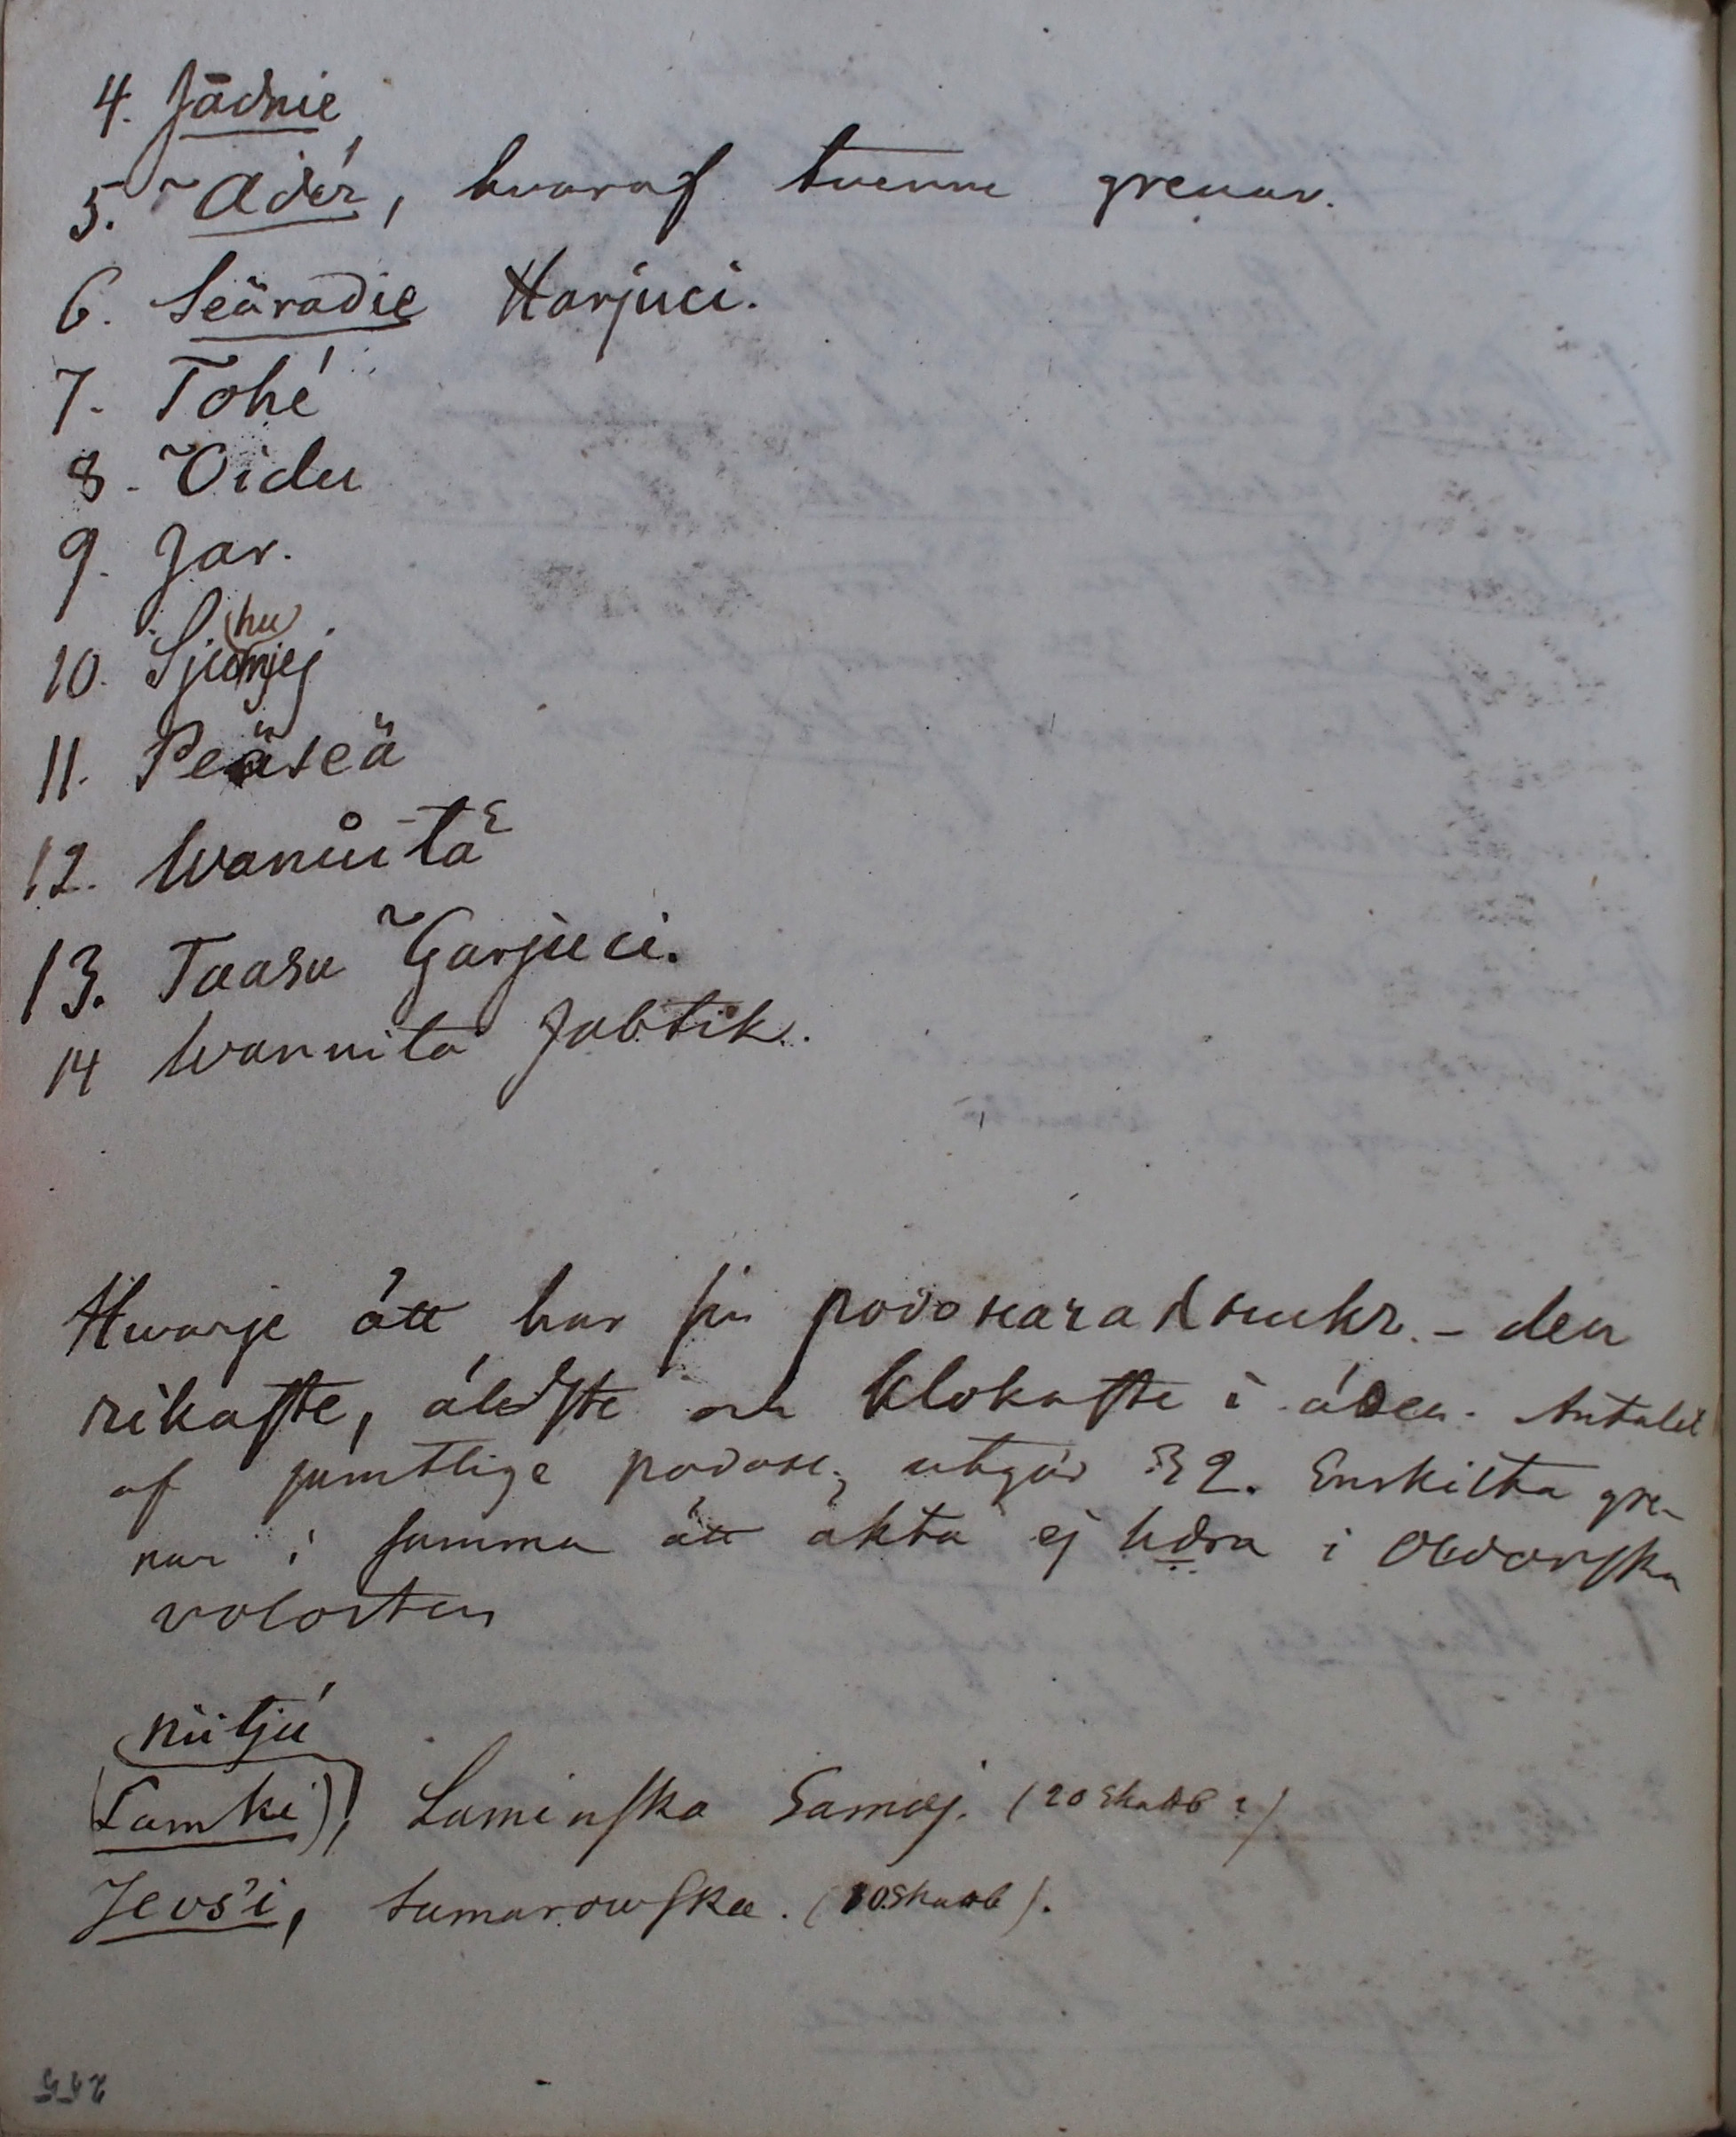 4. Jādnie
5. ˜Adér, hvaraf tvenne grenar.
6. Seäradie Harjuci.
7. Tohé
8. Ỹidu
9. Jar.
10. Sjumjej (hu)
11. Peäseä
12. Wanůita
13. Taasu G̃arjuci.
14 Wannita Jabtik.
Hwarje ätt har sin - den
rikaste, äldste och klokaste i äden. Antalet
af samtlige podose, utgör 32. Enskilta gre-
nar i samma ätt äkta ej hdra i Obdorska
volosten
niitjú
(Lamki), Laminska Samoj. (20 Skattb ?)
Jevsʼi, Samarowska. (10 Skattb).
255